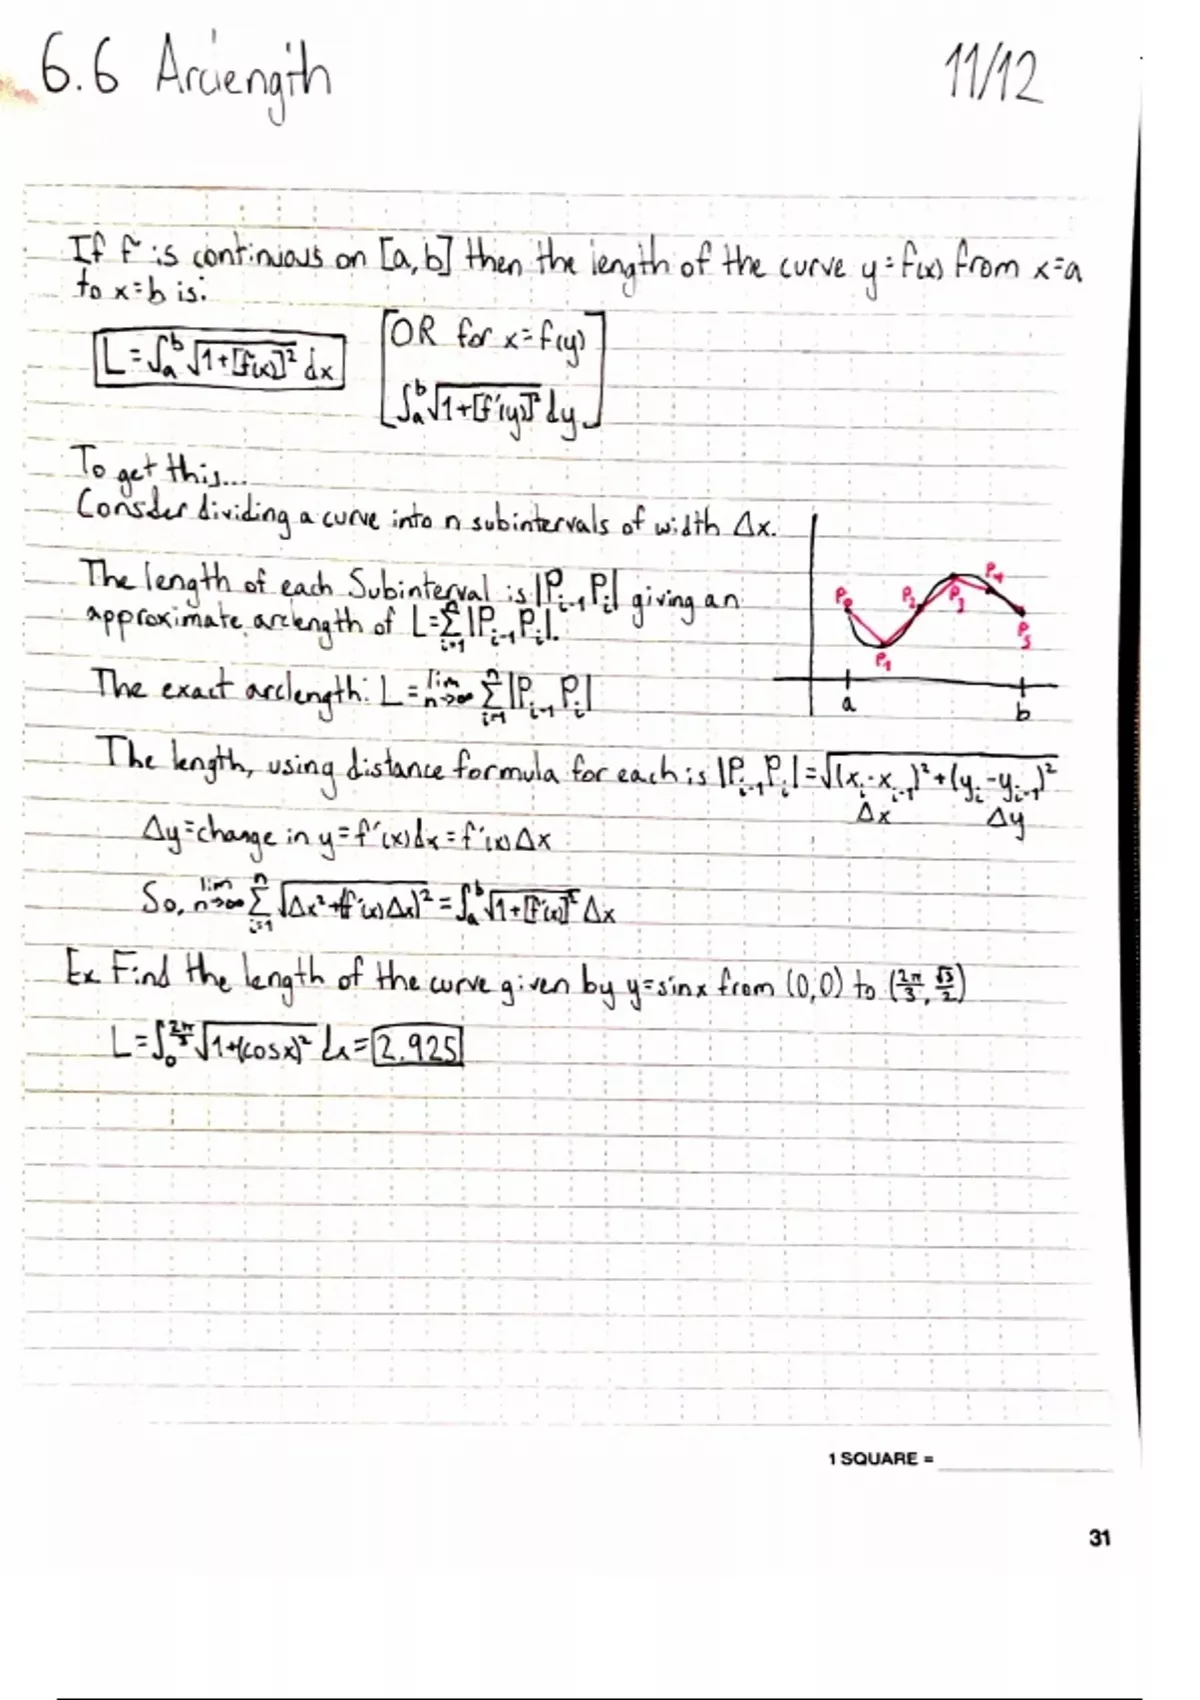 6.6 Arclength 11/12
If f' is continuous on [a,b] then the length of the curve y=f(x) from x=a
to x=b is:
L=∫ₐᵇ √1+[f'(x)]² dx
[OR for x=f(y)
∫ₐᵇ √1+[f'(y)]² dy]
To get this...
Consider dividing a curve into n subintervals of width Δx.
The length of each Subinterval is |Pᵢ₋₁ Pᵢ| giving an
approximate arclength of L=Σⁿᵢ₌₁ |Pᵢ₋₁ Pᵢ|.
P₀ P₁ P₂ P₃ P₄ P₅
a b
The exact arclength: L = lim n→∞ Σⁿᵢ₌₁ |Pᵢ₋₁ Pᵢ|
The length, using distance formula for each is |Pᵢ₋₁ Pᵢ| = √(xᵢ-xᵢ₋₁)²+(yᵢ-yᵢ₋₁)²
Δx Δy
Δy=change in y=f'(x)dx=f'(x)Δx
So, lim n→∞ Σⁿᵢ₌₁ √Δx²+(f'(x)Δx)² = ∫ₐᵇ √1+[f'(x)]² Δx
Ex Find the length of the curve given by y=sinx from (0,0) to (2π/3, √3/2)
L=∫₀^(2π/3) √1+(cosx)² dx = 2.925
1 SQUARE =
31